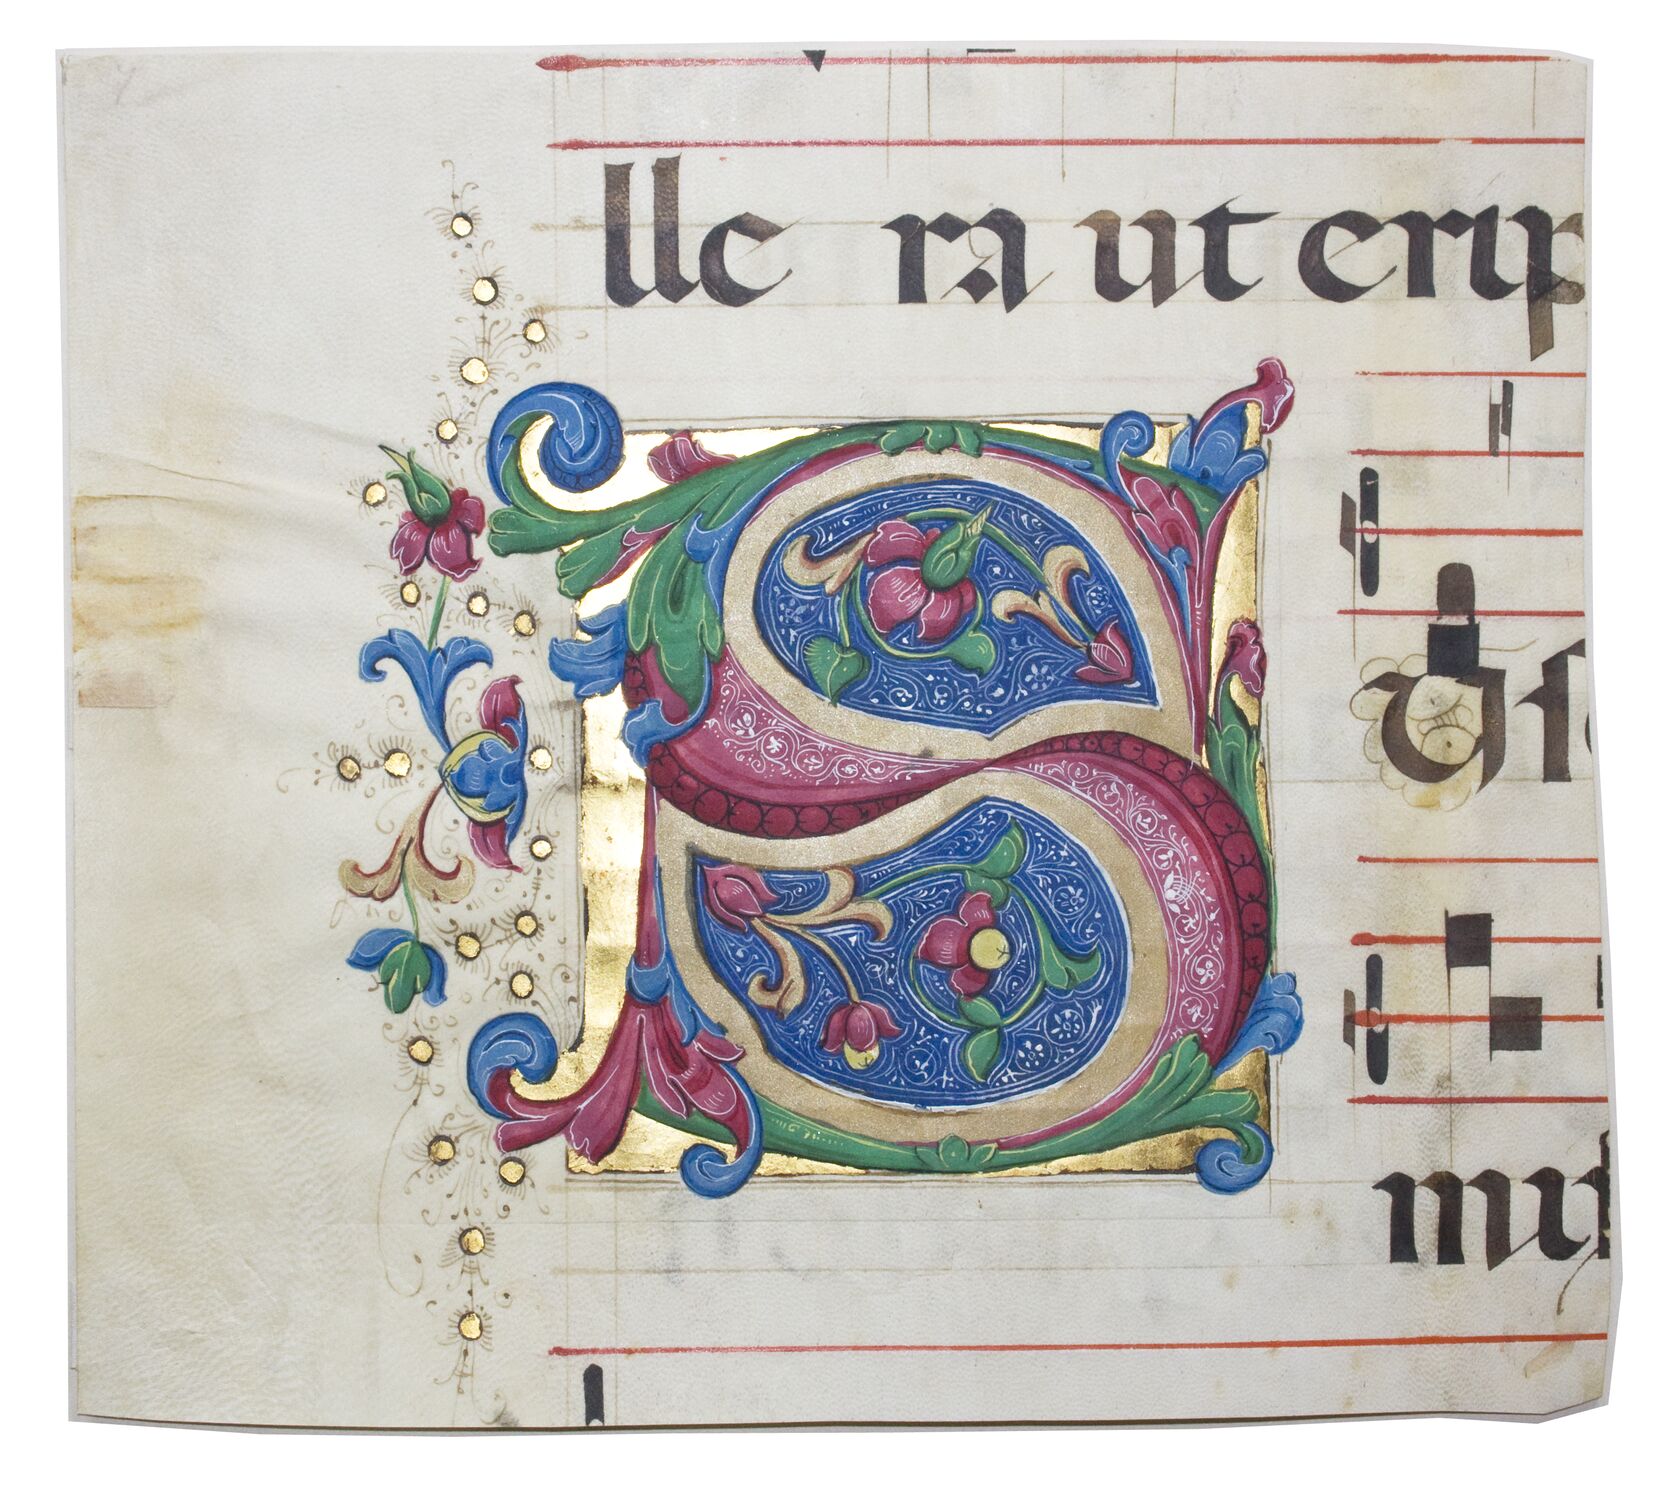 lle ra ut erip
S us
mis